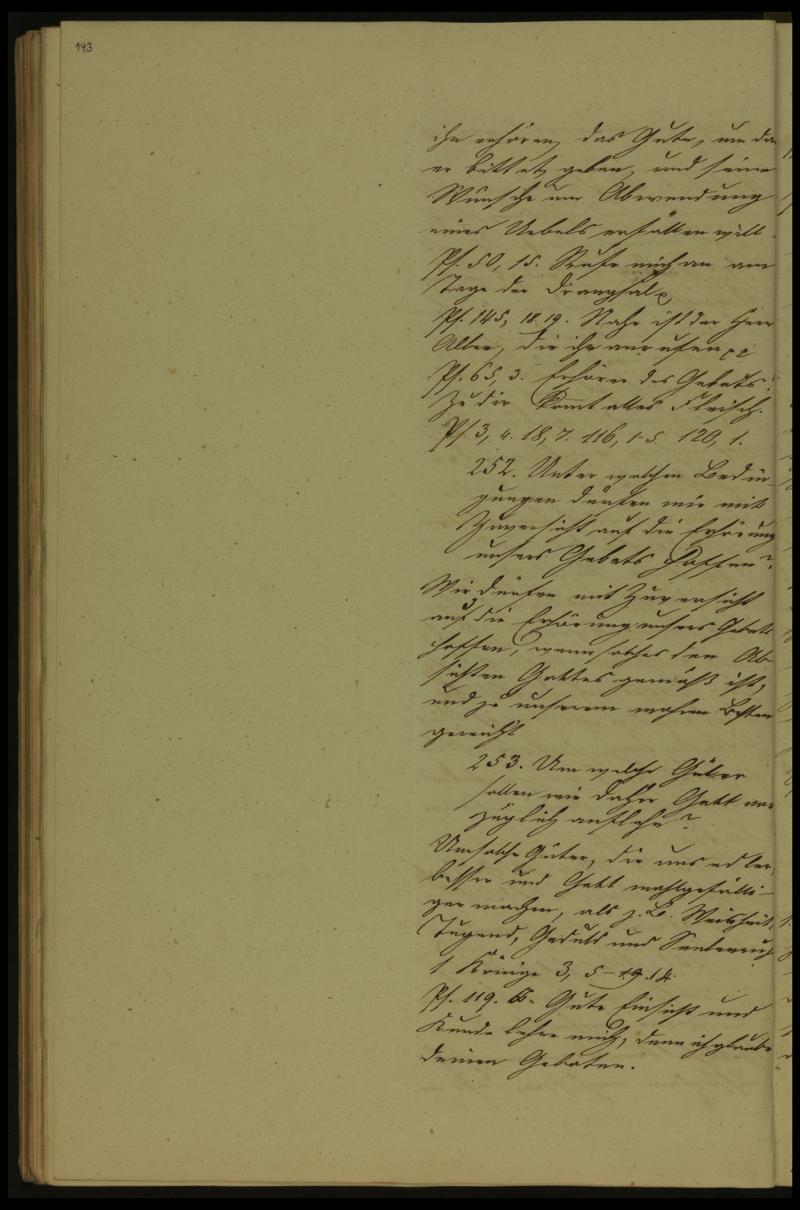 143
ihn erhören, das Gute, um das
er bittet, geben, und seine
Wünsche um Abwendung
eines Uebels erfüllen will.
Ps. 50, 15. Rufe mich an am
Tage der Drangsal
Ps. 145, 18. 19. Nahe ist der Herr
Allen, die ihn anrufen
Ps. 65, 3. Erhörer des Gebets!
Zu dir komt alles Fleisch.
Ps 3, 4. 18, 7. 116, 1-5. 120, 1.
252. Unter welchen Bedin-
gungen dürfen wir mit
Zuversicht auf die Erhörung
unsers Gebets hoffen?
Wir dürfen mit Zuversicht
auf die Erhörung unsers Gebets
hoffen, wenn solches den Ab-
sichten Gottes gemäß ist,
und zu unserem wahren Besten
gereicht
253. Um welche Güter
sollen wir daher Gott vor-
züglich anflehn?
Um solche Güter, die uns edler,
besser und Gott wohlgefälli-
ger machen, als z. B. Weisheit,
Tugend, Geduld und Seelenruh
1 Könige 3, 5-14.
Ps. 119. Gute Einsicht und
Kunde lehre mich, denn ich glaube
deinen Geboten.